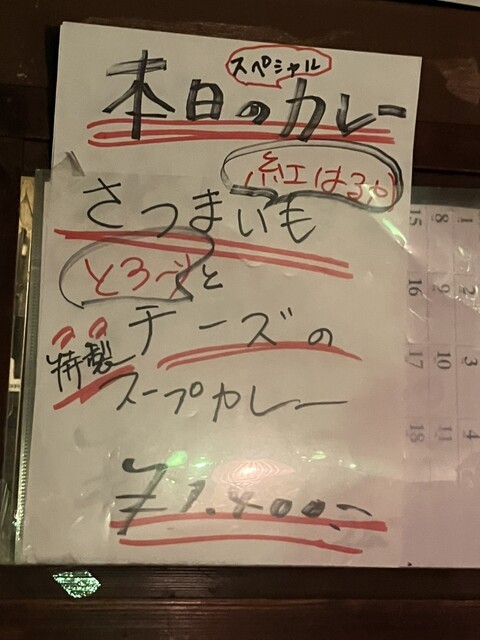 スペシャル
本日のカレー
紅はるか
さつまいも
とろ〜りと
チーズの
特製
スープカレー
¥1.400-
1
8
15
2
9
16
3
10
17
4
11
18